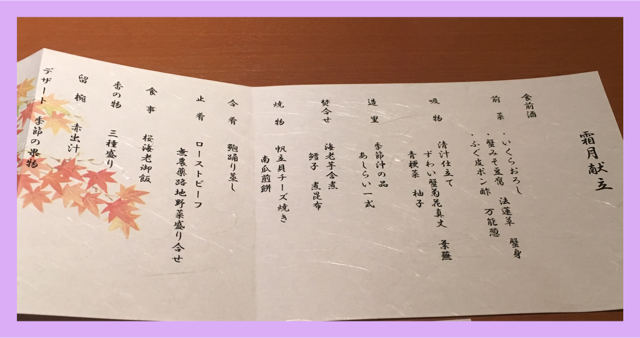 霜月献立
食前酒
前菜 ・いくらおろし 法蓮草 蟹身
・蟹みそ豆腐
・ふぐ皮ポン酢 万能葱
吸物 清汁仕立て
ずわい蟹菊花真丈 蕪
青梗菜 柚子
造里 季節汁の品
あしらい一式
焚合せ 海老芋含煮
鱈子 煮昆布
焼物 帆立貝チーズ焼き
南瓜煎餅
合肴 鮑踊り蒸し
止肴 ローストビーフ
無農薬路地野菜盛り合せ
食事 桜海老御飯
香の物 三種盛り
留椀 赤出汁
デザート 季節の果物